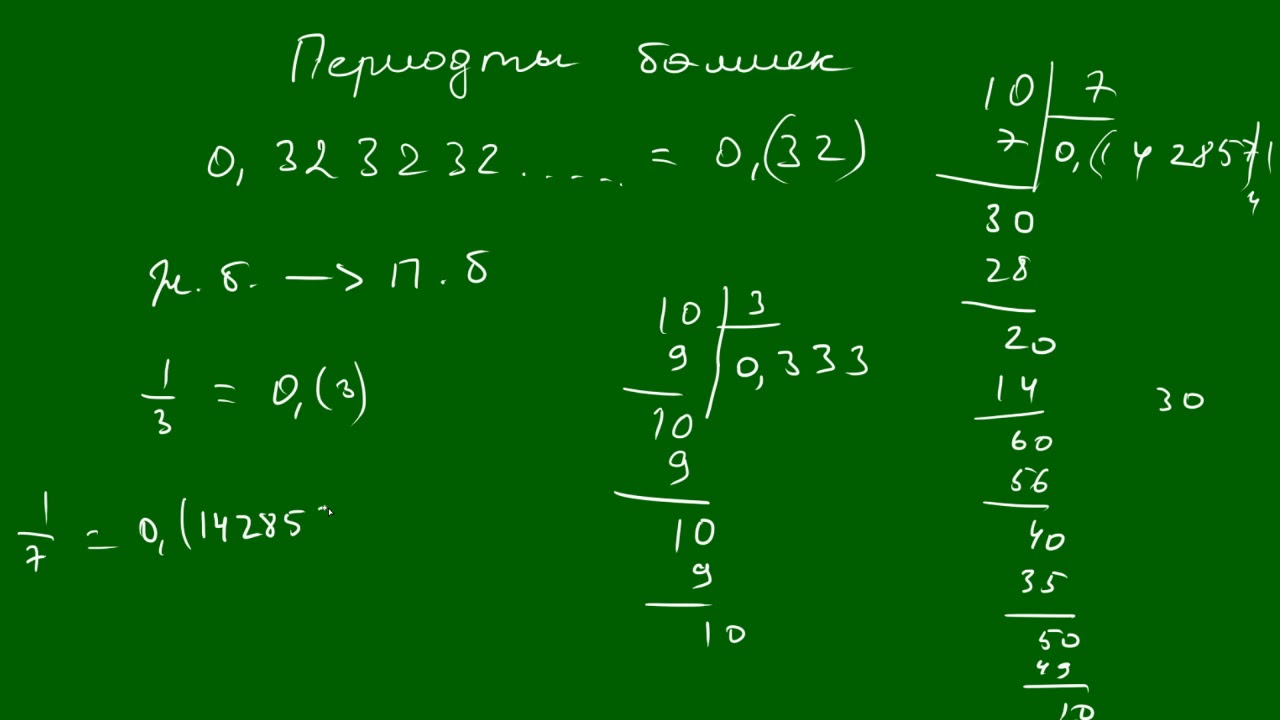 Периодты бөлшек
0, 323232..... = 0,(32)
ж. б. —> П. б
1/3 = 0,(3)
1/7 = 0,(14285
10 | 3
9 | 0,333
10
9
10
9
10
10 | 7
7 | 0,(142857)1
4
30
28
20
14
60
56
40
35
50
49
10
30